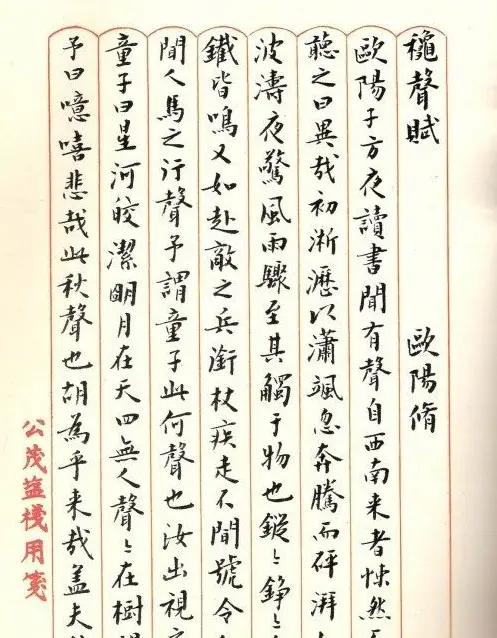 穐聲賦　歐陽脩
歐陽子方夜讀書聞有聲自西南来者悚然
聽之曰異哉初淅瀝以瀟颯忽奔騰而砰湃
波濤夜驚風雨驟至其觸于物也鏦〻錚〻
鐵皆鳴又如赴敵之兵銜枚疾走不聞號令
聞人馬之行聲予謂童子此何聲也汝出視
童子曰星河皎潔明月在天四無人聲〻在樹
予曰噫嘻悲哉此秋聲也胡為乎来哉盖夫
公茂盐棧用箋